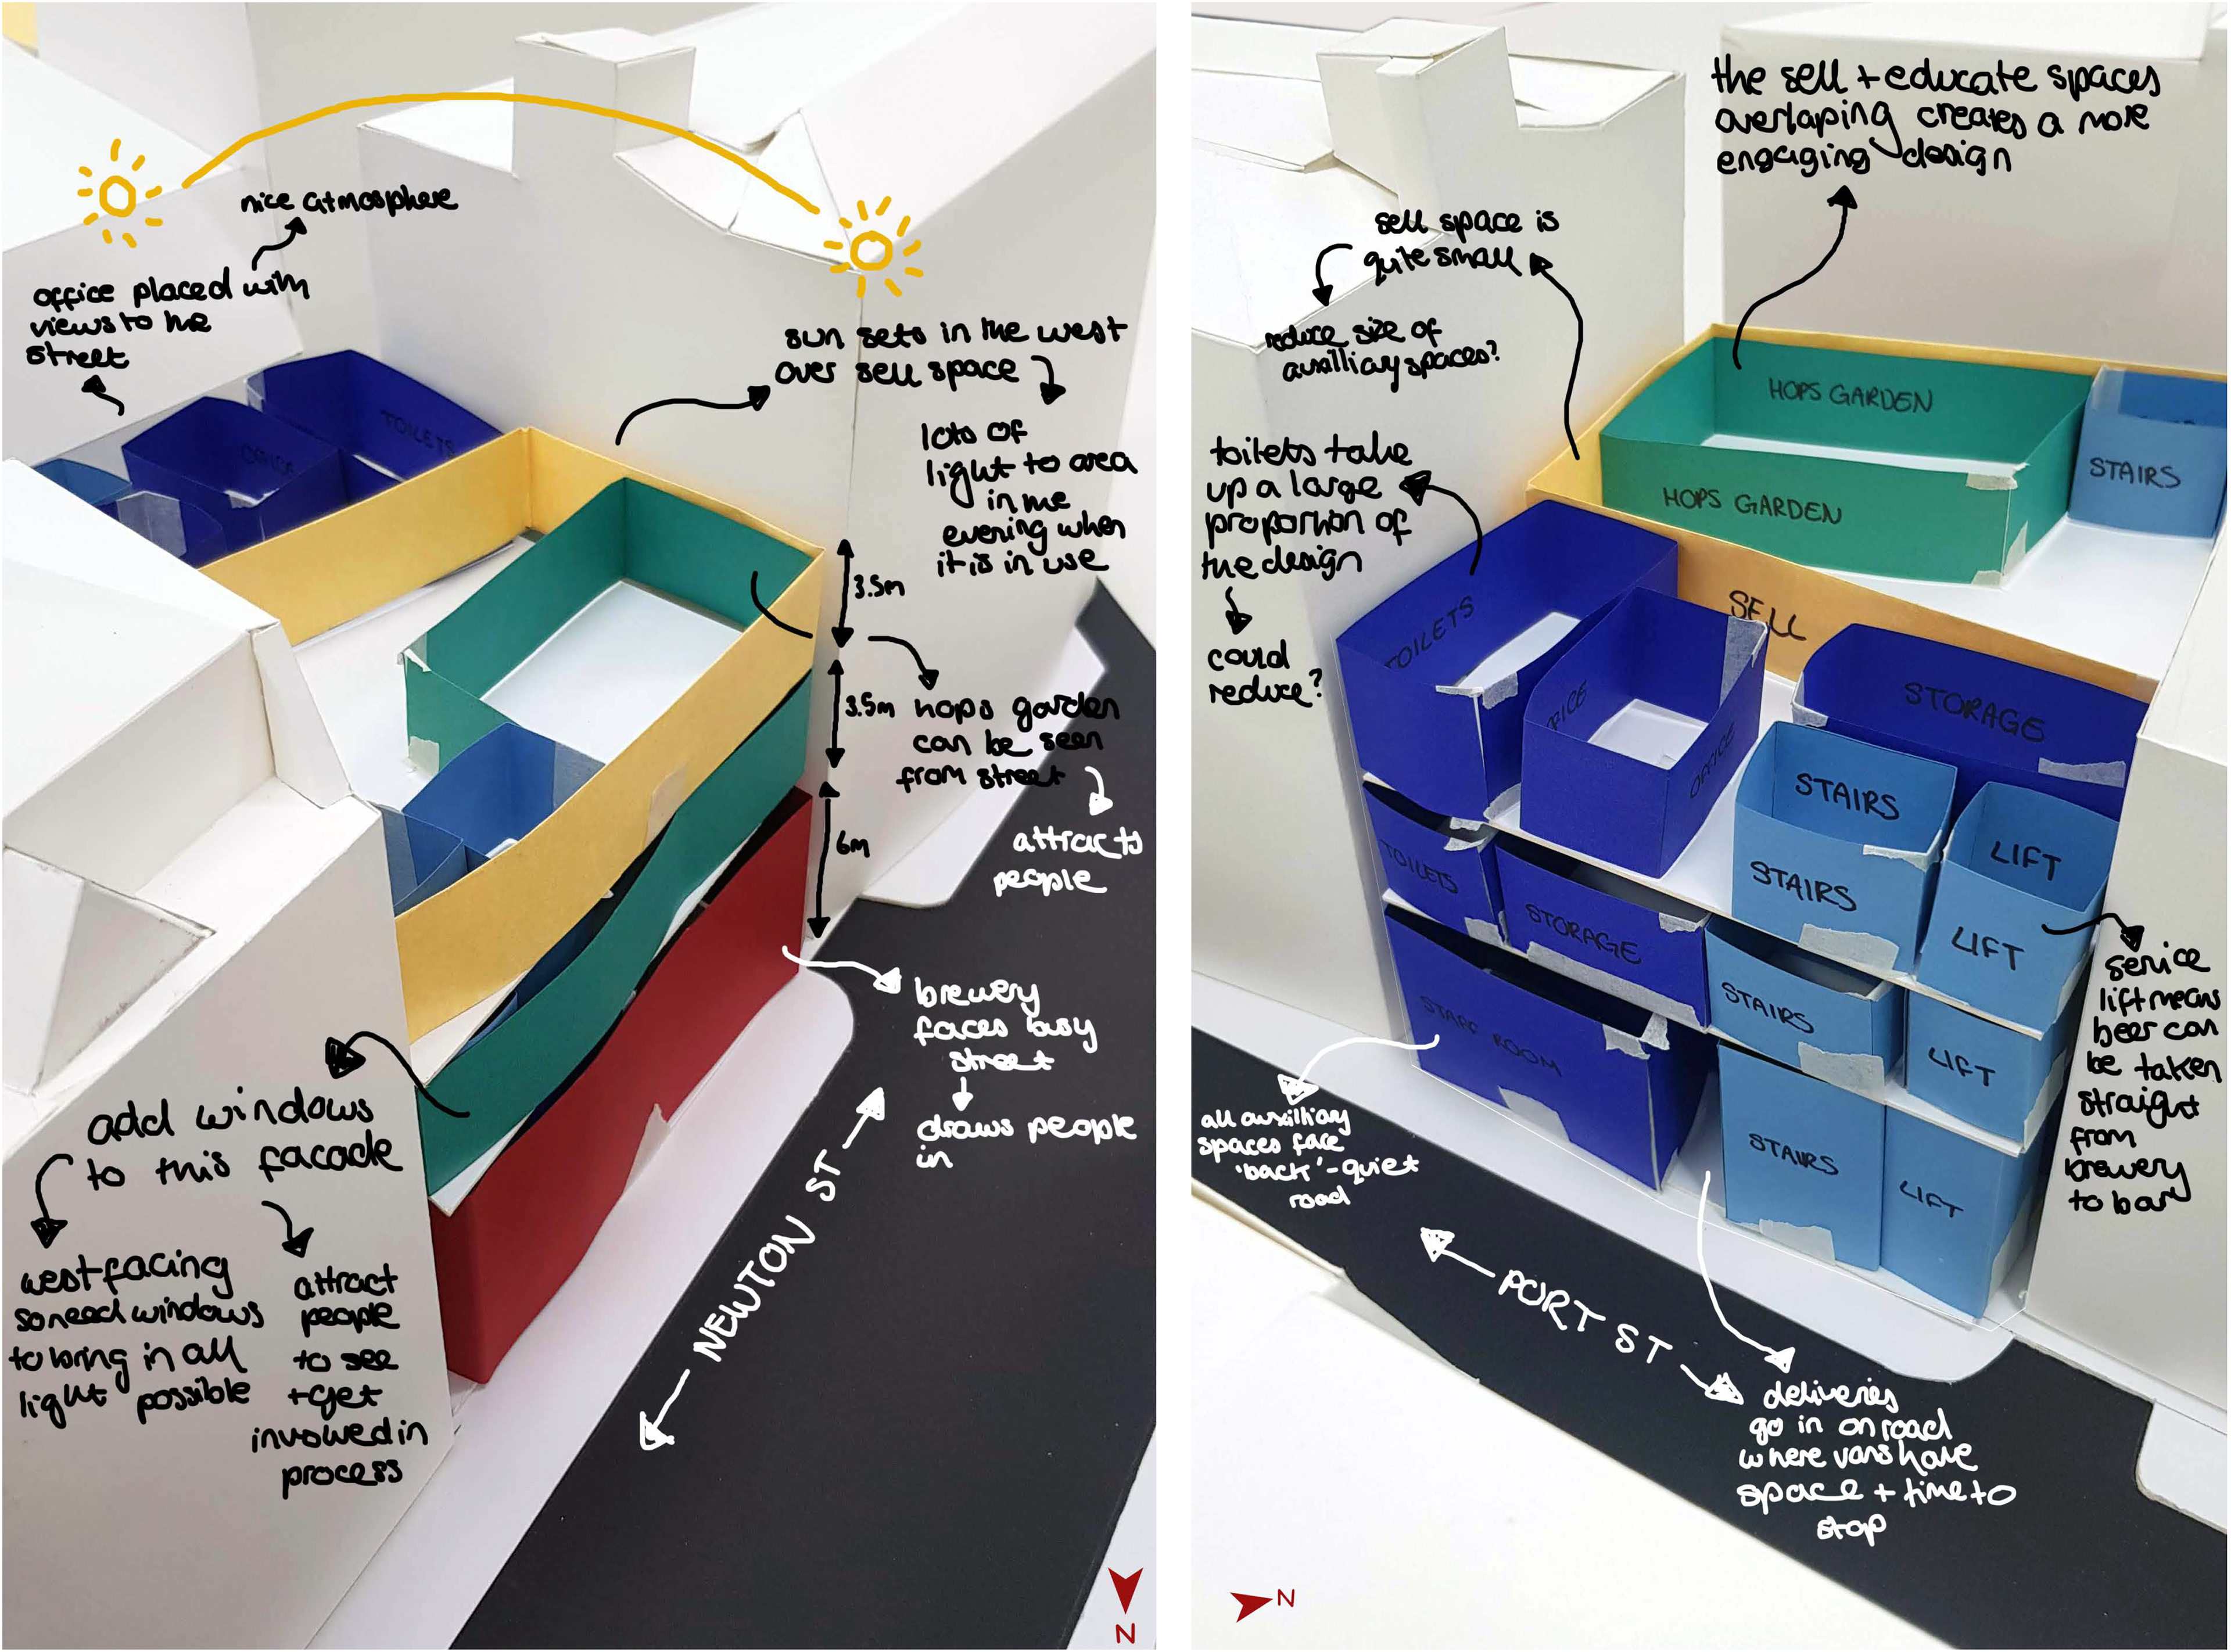 nice atmosphere
office placed with
views to the
street
TOILETS
OFFICE
sun sets in the west
over sell space
lots of
light to area
in the
evening when
it is in use
3.5m
3.5m
6m
hops garden
can be seen
from street
attracts
people
brewery
faces busy
street
draws people
in
add windows
to this facade
west facing
so need windows
to bring in all
light possible
attract
people
to see
+ get
involved in
process
NEWTON ST
N
the sell + educate spaces
overlaping creates a more
engaging design
sell space is
quite small
reduce size of
auxilliary spaces?
toilets take
up a large
proportion of
the design
could
reduce?
HOPS GARDEN
HOPS GARDEN
STAIRS
SELL
TOILETS
OFFICE
STORAGE
STAIRS
STAIRS
LIFT
LIFT
TOILETS
STORAGE
STAIRS
LIFT
STAFF ROOM
STAIRS
LIFT
service
lift means
beer can
be taken
straight
from
brewery
to bar
all auxilliary
spaces face
'back' - quiet
road
PORT ST
deliveries
go in on road
where vans have
space + time to
stop
N